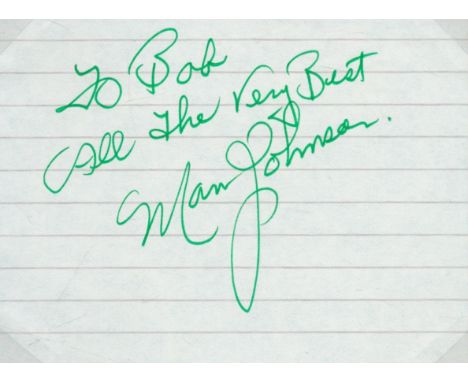 To Bob
All The Very Best
Marv Johnson.